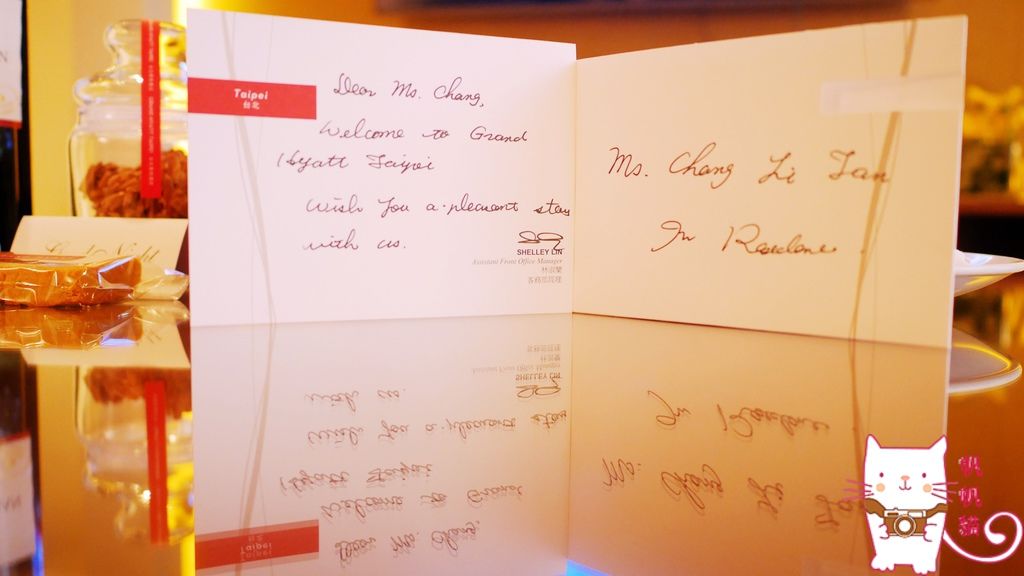 Taipei
台北
Dear Ms. Chang,
Welcome to Grand
Hyatt Taipei
Wish you a pleasant stay
with us.
SHELLEY LIN
Assistant Front Office Manager
客務部副理
Ms. Chang Li Tan
In Residence
帆帆貓